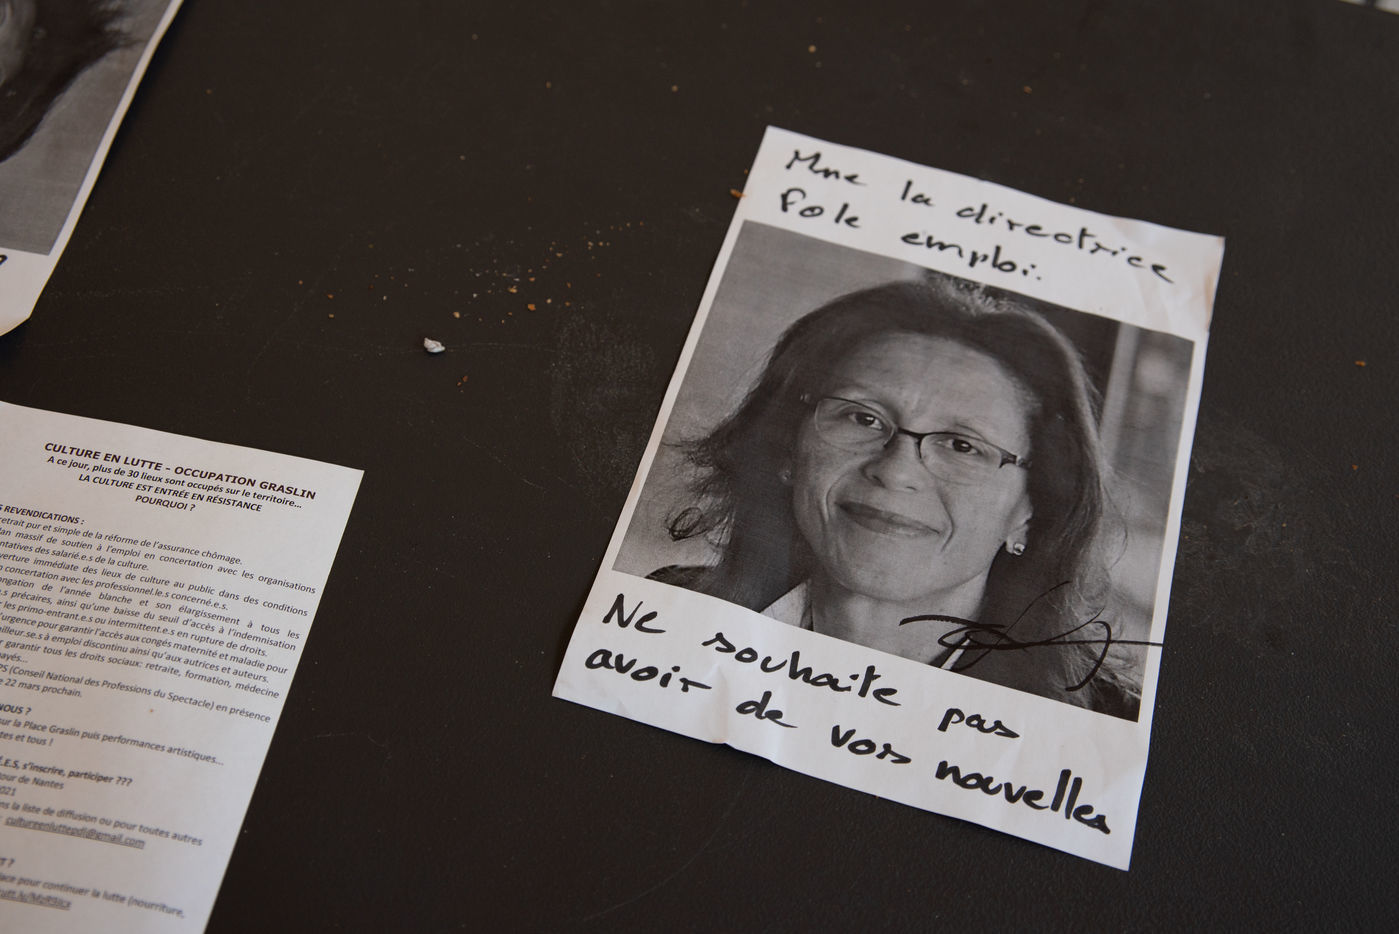 Mme la directrice
Pole emploi.
Ne souhaite pas
avoir de vos nouvelles
CULTURE EN LUTTE – OCCUPATION GRASLIN
A ce jour, plus de 30 lieux sont occupés sur le territoire...
LA CULTURE EST ENTRÉE EN RÉSISTANCE
POURQUOI ?
REVENDICATIONS :
retrait pur et simple de la réforme de l'assurance chômage.
massif de soutien à l'emploi en concertation avec les organisations
des salarié.e.s de la culture.
immédiate des lieux de culture au public dans des conditions
concertation avec les professionnel.le.s concerné.e.s.
de l'année blanche et son élargissement à tous les
précaires, ainsi qu'une baisse du seuil d'accès à l'indemnisation
les primo-entrant.e.s ou intermittent.e.s en rupture de droits.
pour garantir l'accès aux congés maternité et maladie pour
à emploi discontinu ainsi qu'aux autrices et auteurs.
garantir tous les droits sociaux: retraite, formation, médecine
(Conseil National des Professions du Spectacle) en présence
22 mars prochain.
NOUS ?
la Place Graslin puis performances artistiques...
et tous !
s'inscrire, participer ???
de Nantes
la liste de diffusion ou pour toutes autres
cultureenluttepdl@gmail.com
pour continuer la lutte (nourriture,